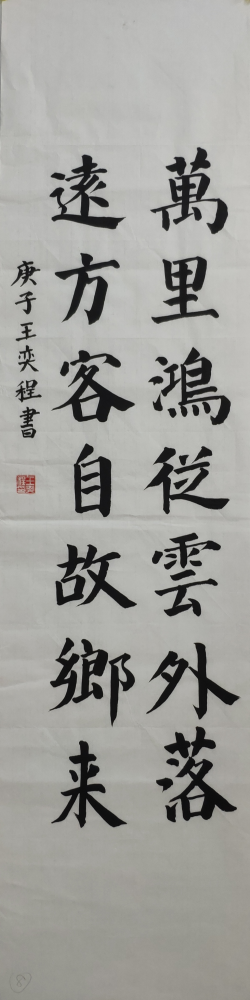 萬里鴻從雲外落
遠方客自故鄉来
庚子王奕程書